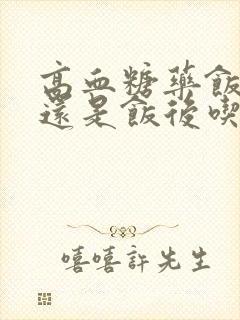 高血糖药飯
還是飯後喫
嘻嘻許先生